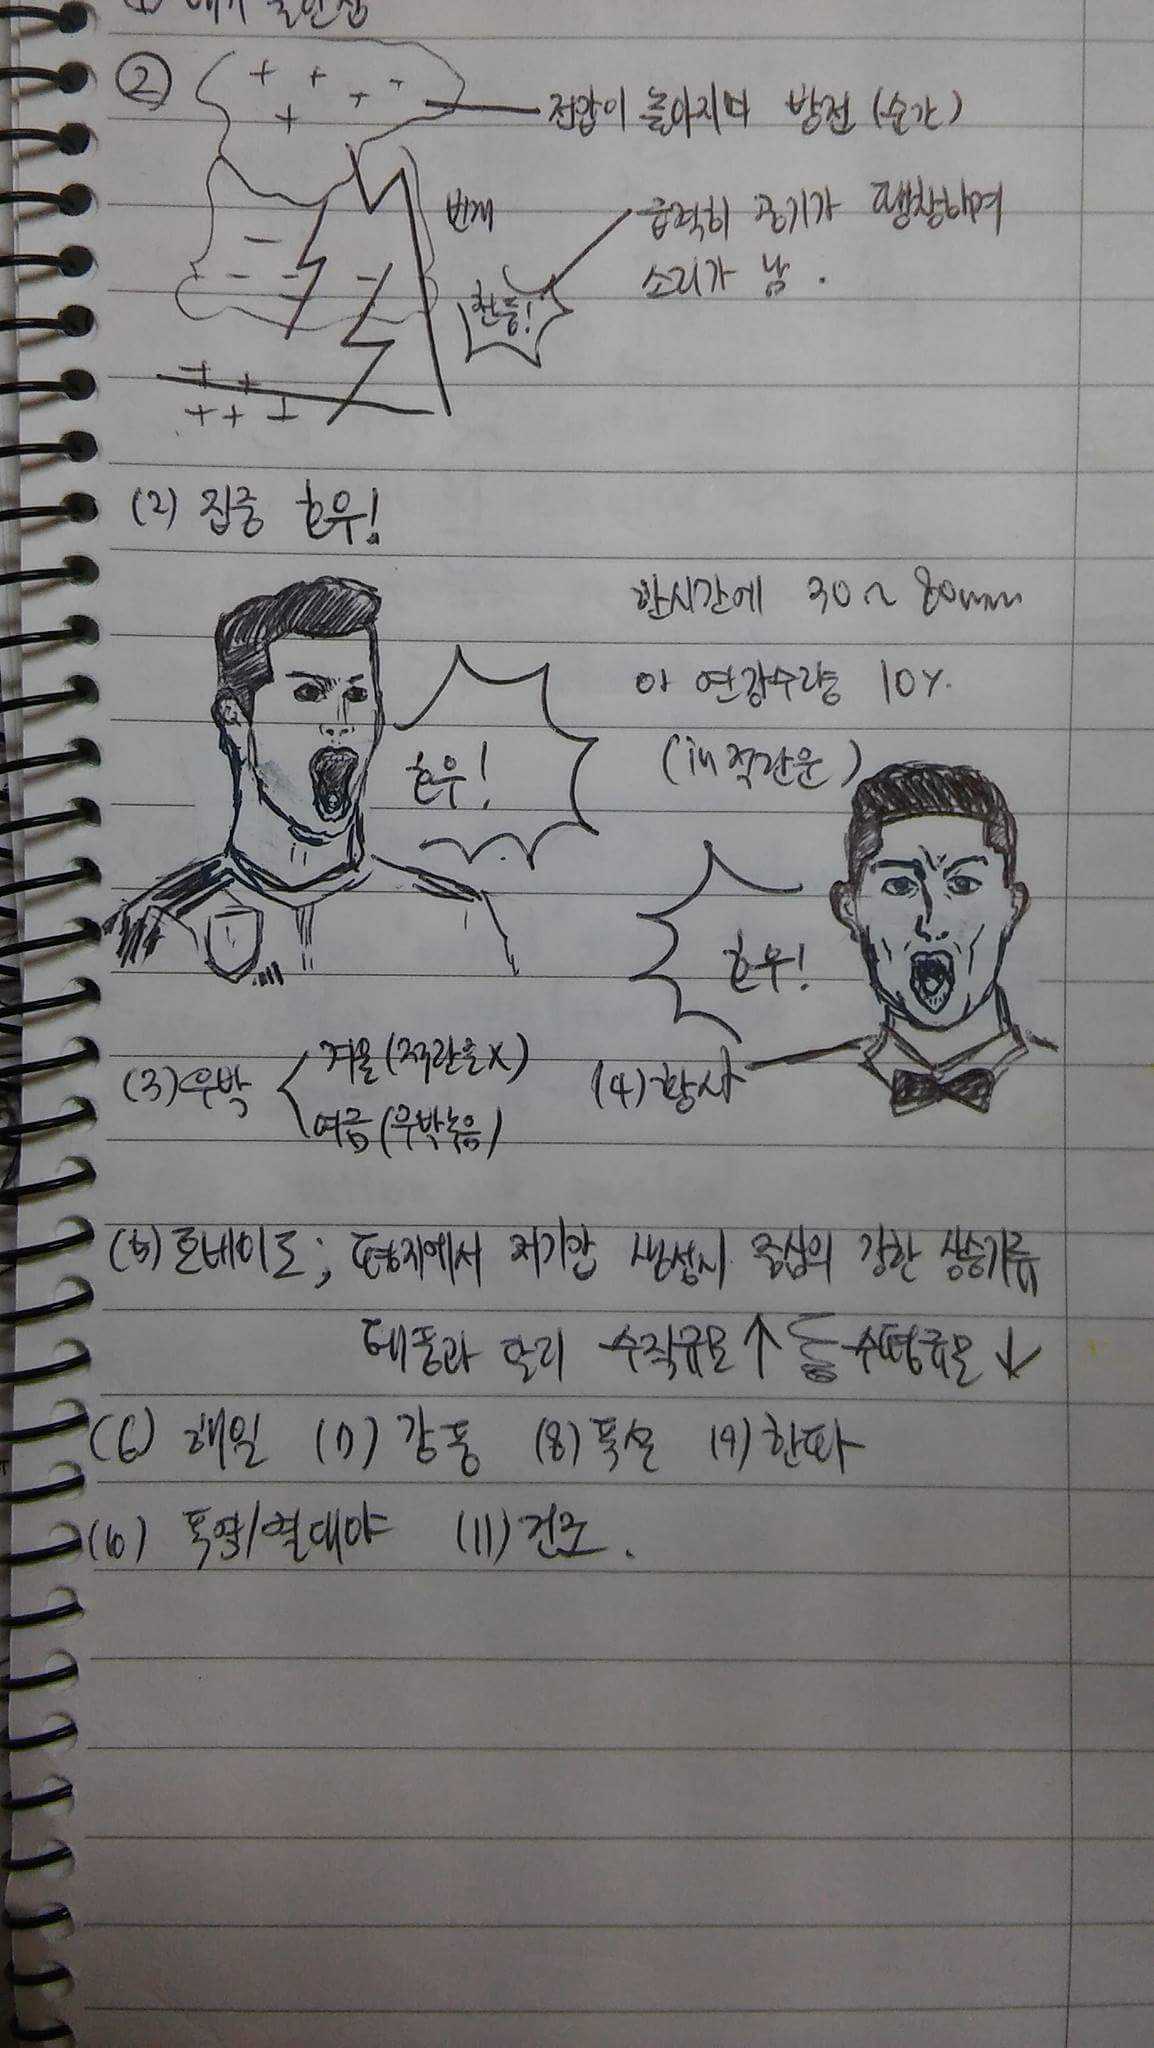 ②
+ + + + +
전압이 높아지며 방전 (순간)
번개
급격히 공기가 팽창하며
소리가 남.
천둥!
+ +
+ + +
(2) 집중 호우!
한시간에 30~80mm
or 연강수량 10%.
(in 적란운)
호우!
호우!
(3) 우박 < 겨울(적란운X)
여름(우박녹음)
(4) 황사
(5) 토네이도; 평지에서 저기압 생성시 중심의 강한 상승기류
태풍과 달리 수직규모↑ 수평규모↓
(6) 해일 (7) 강풍 (8) 폭설 (9) 한파
(10) 폭염/열대야 (11) 건조.